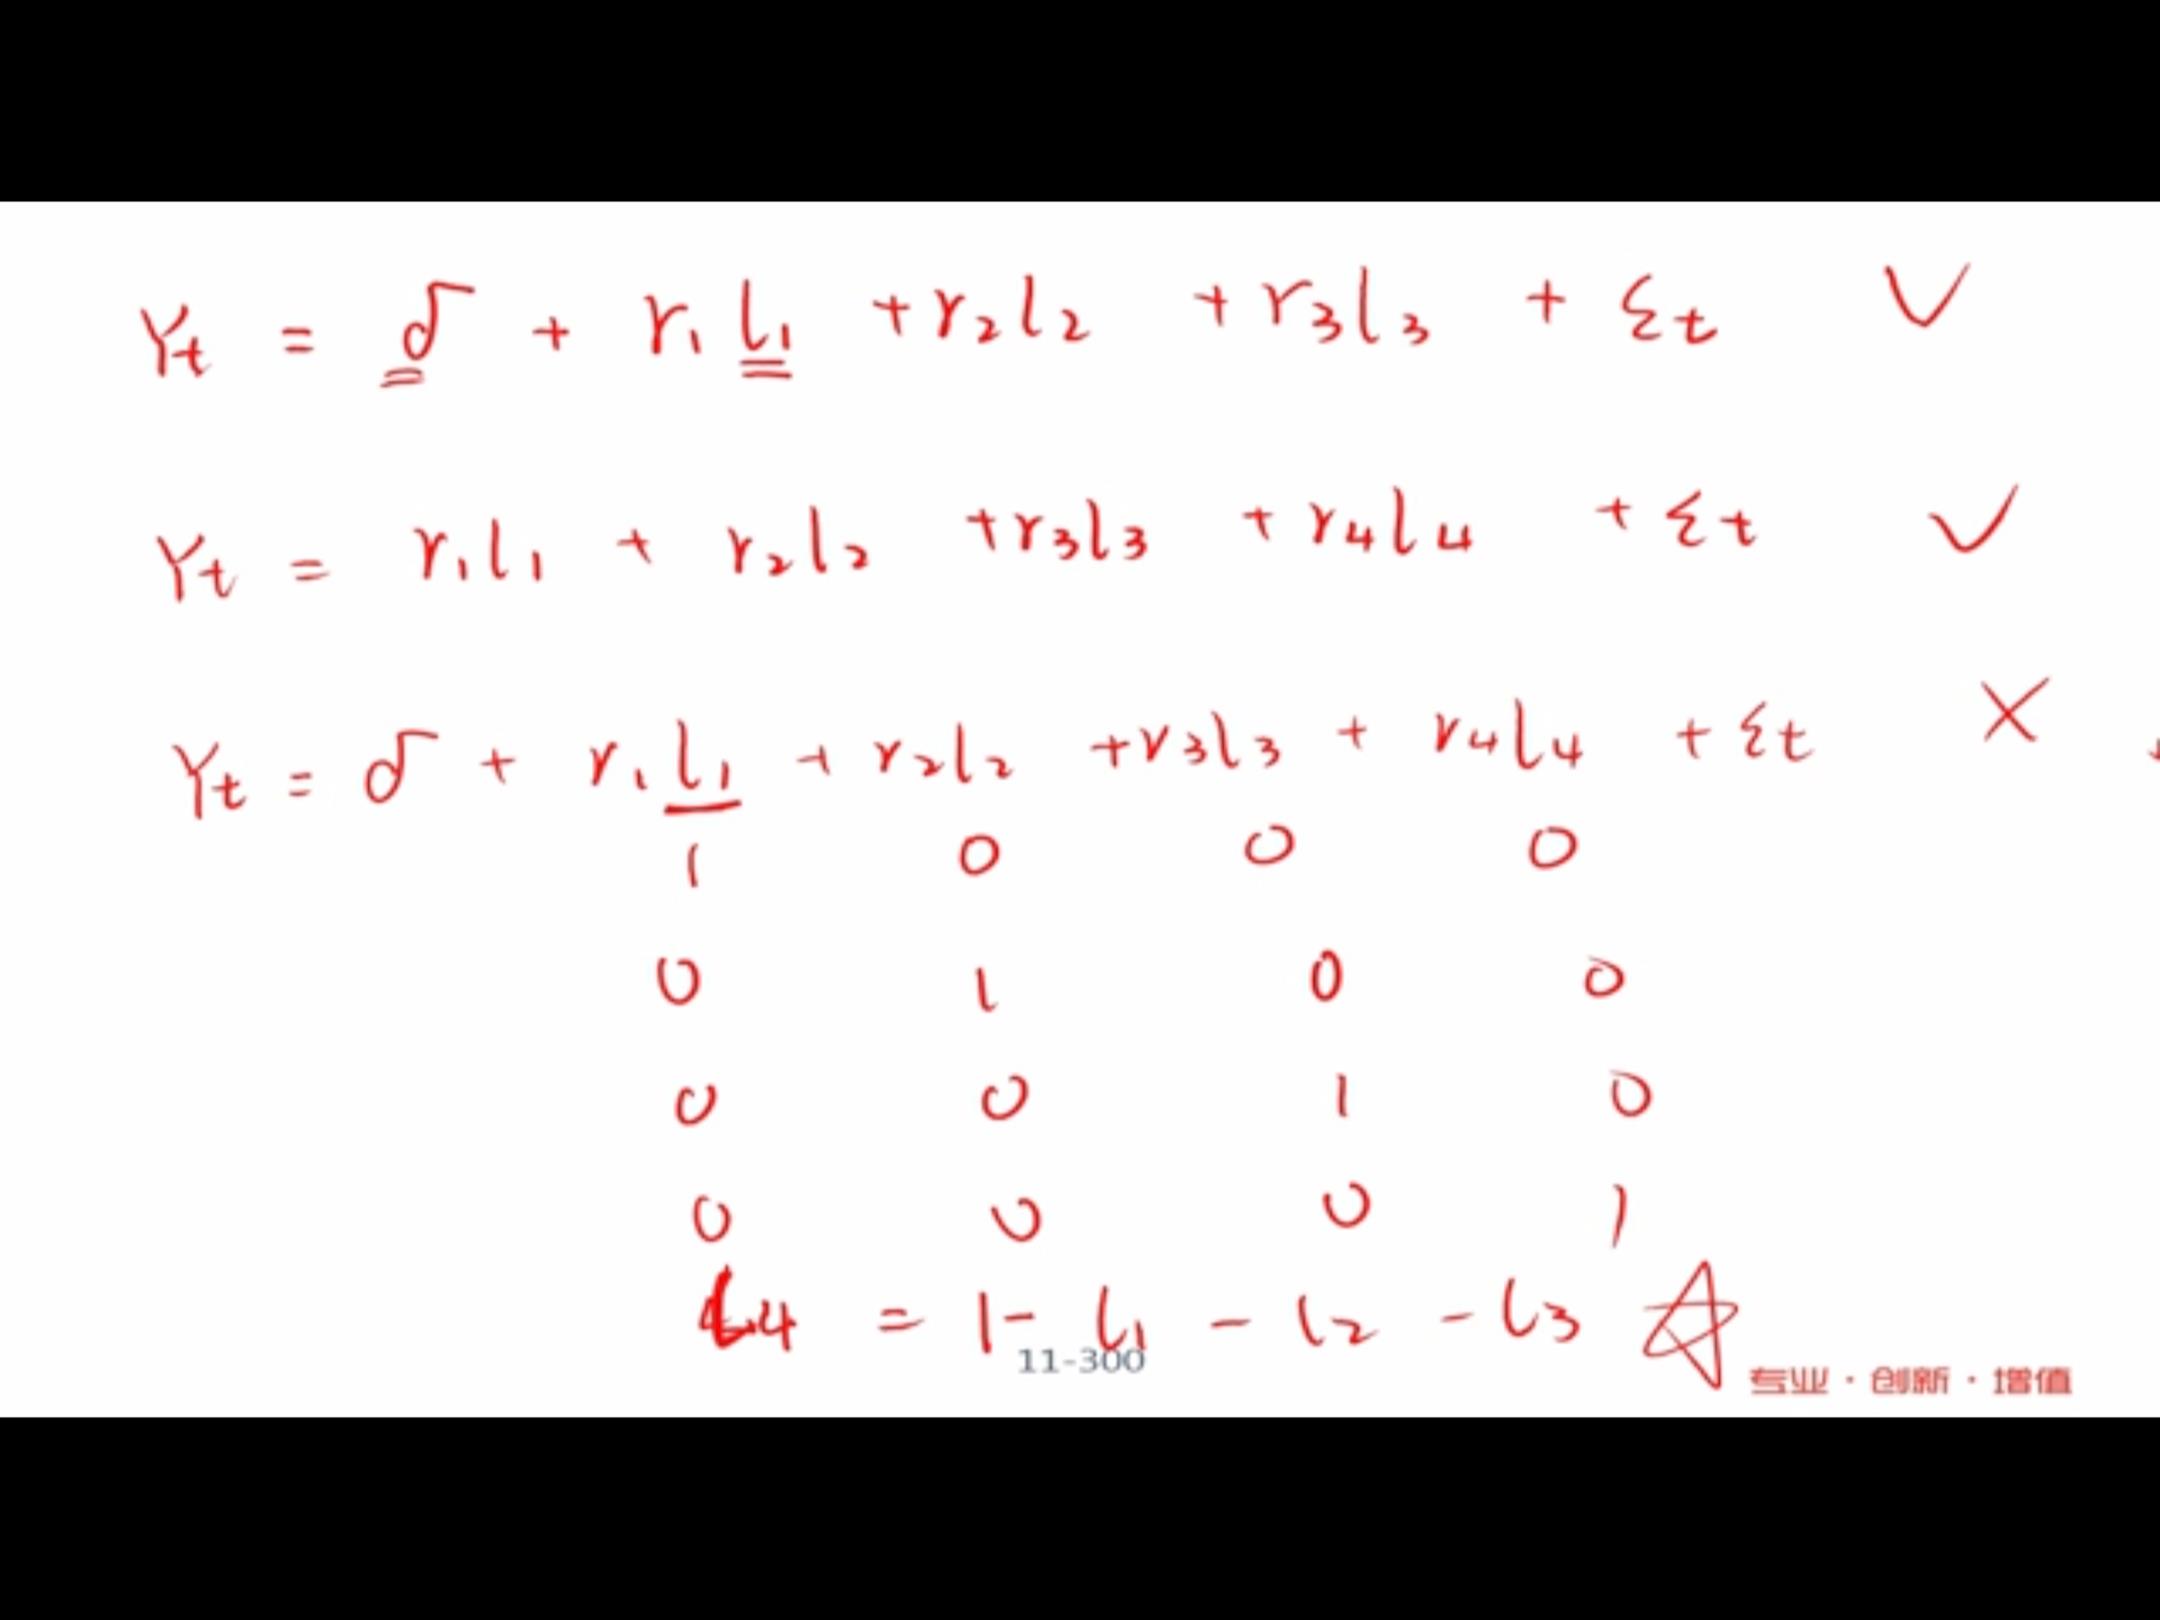 Yt = δ + r₁ l₁ + r₂ l₂ + r₃ l₃ + εt ✓
Yt = r₁ l₁ + r₂ l₂ + r₃ l₃ + r₄ l₄ + εt ✓
Yt = δ + r₁ l₁ + r₂ l₂ + r₃ l₃ + r₄ l₄ + εt ×
1 0 0 0
0 1 0 0
0 0 1 0
0 0 0 1
l₄ = 1 - l₁ - l₂ - l₃ ☆
11-300
专业·创新·增值